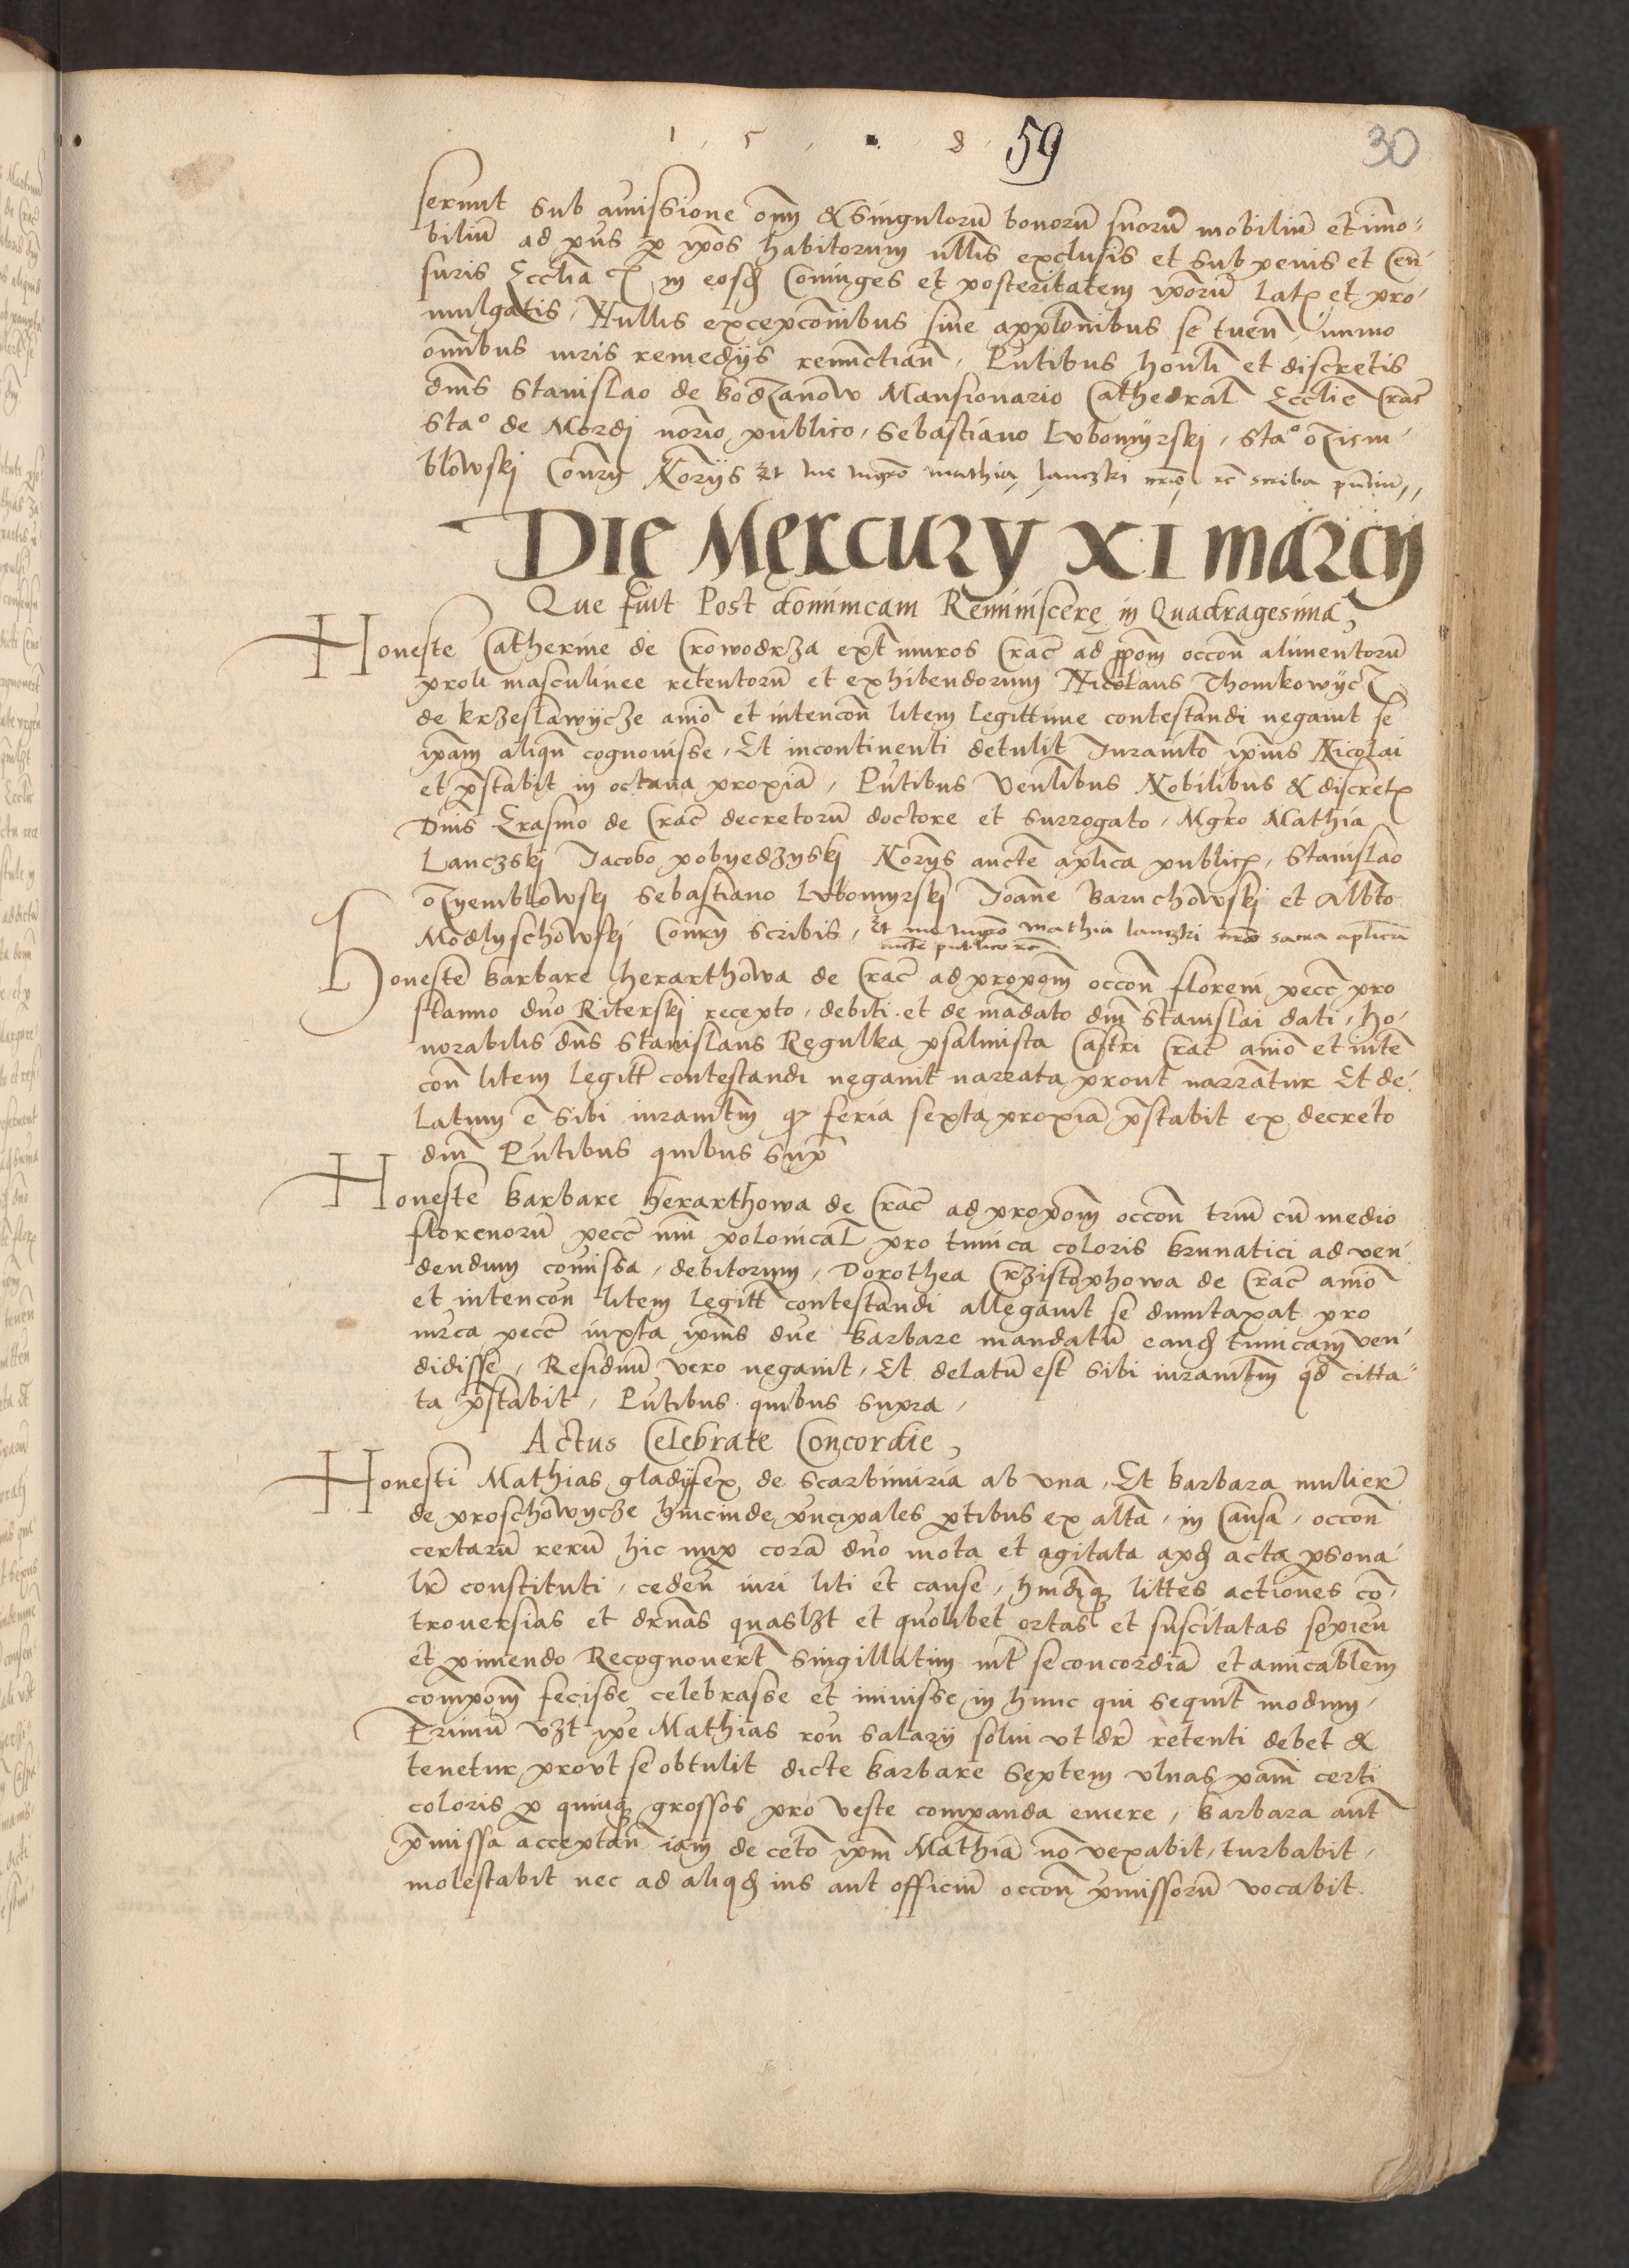 1 5 . 8 59 30
serunt sub amissione om̄ & singulorū bonorū suorū mobiliū et im̄o-
biliū ad p̄ns p ip̄os habitorum ullis exclusis et sub penis et Cen-
suris Eccl̄ia in eosd Coniuges et posteritatem ip̄orū Lat et pro-
mulgatis, Nullis excepcōnibus sine app̄lōnibus se tuen̄ immo
om̄ibus iuris remedijs renūctian̄, Pn̄tibus hon̄li et discretis
dn̄is Stanislao de bodzanow Mansionario Cathedral̄ Eccl̄ie Crac̄
Sta° de Mordi no͞rio publico, Sebastiano Lubomyrskj, Sta° ozieim-
blowskj Con̄ry No͞rijs Et me mg͞ro mathia lanczki scriba
DIE MERCURY XI MARCIJ
Que fuit Post dominicam Reminiscere in Quadragesima,
Honeste Catherine de Crowodrza ext̄ muros Crac̄ ad ppo͞m occo͞n alimentorū
proli masculinee retentorū et exhibendorum Nicolaus Thomkowycz
de krzeslawycze an͞io et intenco͞n litem legittime contestandi negauit se
ip̄am aliqn̄ cognouisse, Et incontinenti detulit Iuram̄to ip̄ius Nicolai
et p̄stabit in octaua proxi͞a, Pn̄tibus Ven̄libus Nobilibus & discret
Dn̄is Erasmo de Crac̄ decretorū doctore et surrogato, Mg͞ro Mathia
Lanczskj Iacobo pobyedzyskj No͞rijs aucte ap̄lica public, Stanislao
ozyemblowskj Sebastiano Lubomyrskj Ioan̄e Baruchowskj et Alb̄to
Modlyschowskj Con̄ry scribis, Et me mg͞ro mathia lanczki sacra ap̄lica
aucte publico
Honeste barbare herarthowa de Crac̄ ad propo͞m occo͞n floreni pecc̄ pro
stanno dn̄o Riterskj recepto, debiti et de mādato dn̄i Stanislai dati, ho-
norabilis dn̄s Stanislaus Regulka psalmista Castri Crac̄ an͞io et inten
co͞n litem legitt̄ contestandi negauit narrata prout narrantur Et de-
latum ē sibi iuram̄tm feria sexta proxi͞a p̄stabit ex decreto
dn̄i Pn̄tibus quibus sup̄
Honeste barbare herarthowa de Crac̄ ad propo͞m occo͞n triū cū medio
florenorū pecc̄ nu͞m polonical̄ pro tunica coloris brunatici ad ven-
dendum com̄issa, debitorum, Dorothea Crzistophowa de Crac̄ an͞io
et intenco͞n litem legitt̄ contestandi allegauit se dumtaxat pro
mrca pecc̄ iuxta ip̄ius dn̄e barbare mandatū eand tunicam ven-
didisse, Residuū vero negauit, Et delatū est sibi iuram̄tm qd citta-
ta p̄stabit, Pn̄tibus quibus supra,
Actus Celebrate Concordie,
Honesti Mathias gladifex de Scarbimiria ab una, Et barbara mulier
de proschowycze hincinde p̄ncipales p̄tibus ex alta, in Causa, occo͞n
certarū rerū hic nup corā dn̄o mota et agitata apd acta psona-
lr̄ constituti, ceden̄ iuri liti et cause, hm̄diq littes actiones cō-
trouersias et dr̄nas quaslzt et quolibet ortas et suscitatas sopien̄
et pimendo Recognouer̄t singillatim int̄ se concordiā et amicab̄lem
compo͞m fecisse celebrasse et iniuisse in hunc qui sequit̄ modum,
Primū vzt ip̄e Mathias ro͞n salarij solui ut dr̄ retenti debet &
tenetur prout se obtulit dicte barbare septem ulnas pan̄i certi
coloris p quinq grossos pro veste comparanda emere, barbara aut̄
p̄missa acceptan̄ iam de ceto ip̄m Mathiā nō vexabit, turbabit,
molestabit nec ad aliqd ius aut officiū occo͞n p̄missorū vocabit.